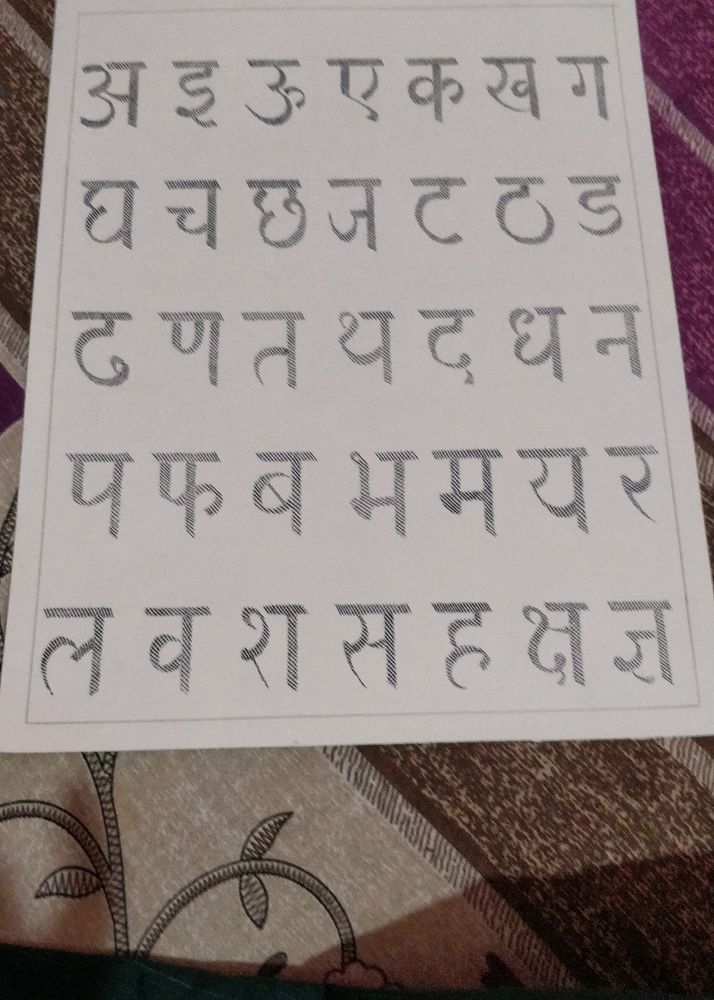 अ इ ऊ ए क ख ग
घ च छ ज ट ठ ड
ढ ण त थ द ध न
प फ ब भ म य र
ल व श स ह क्ष ज्ञ